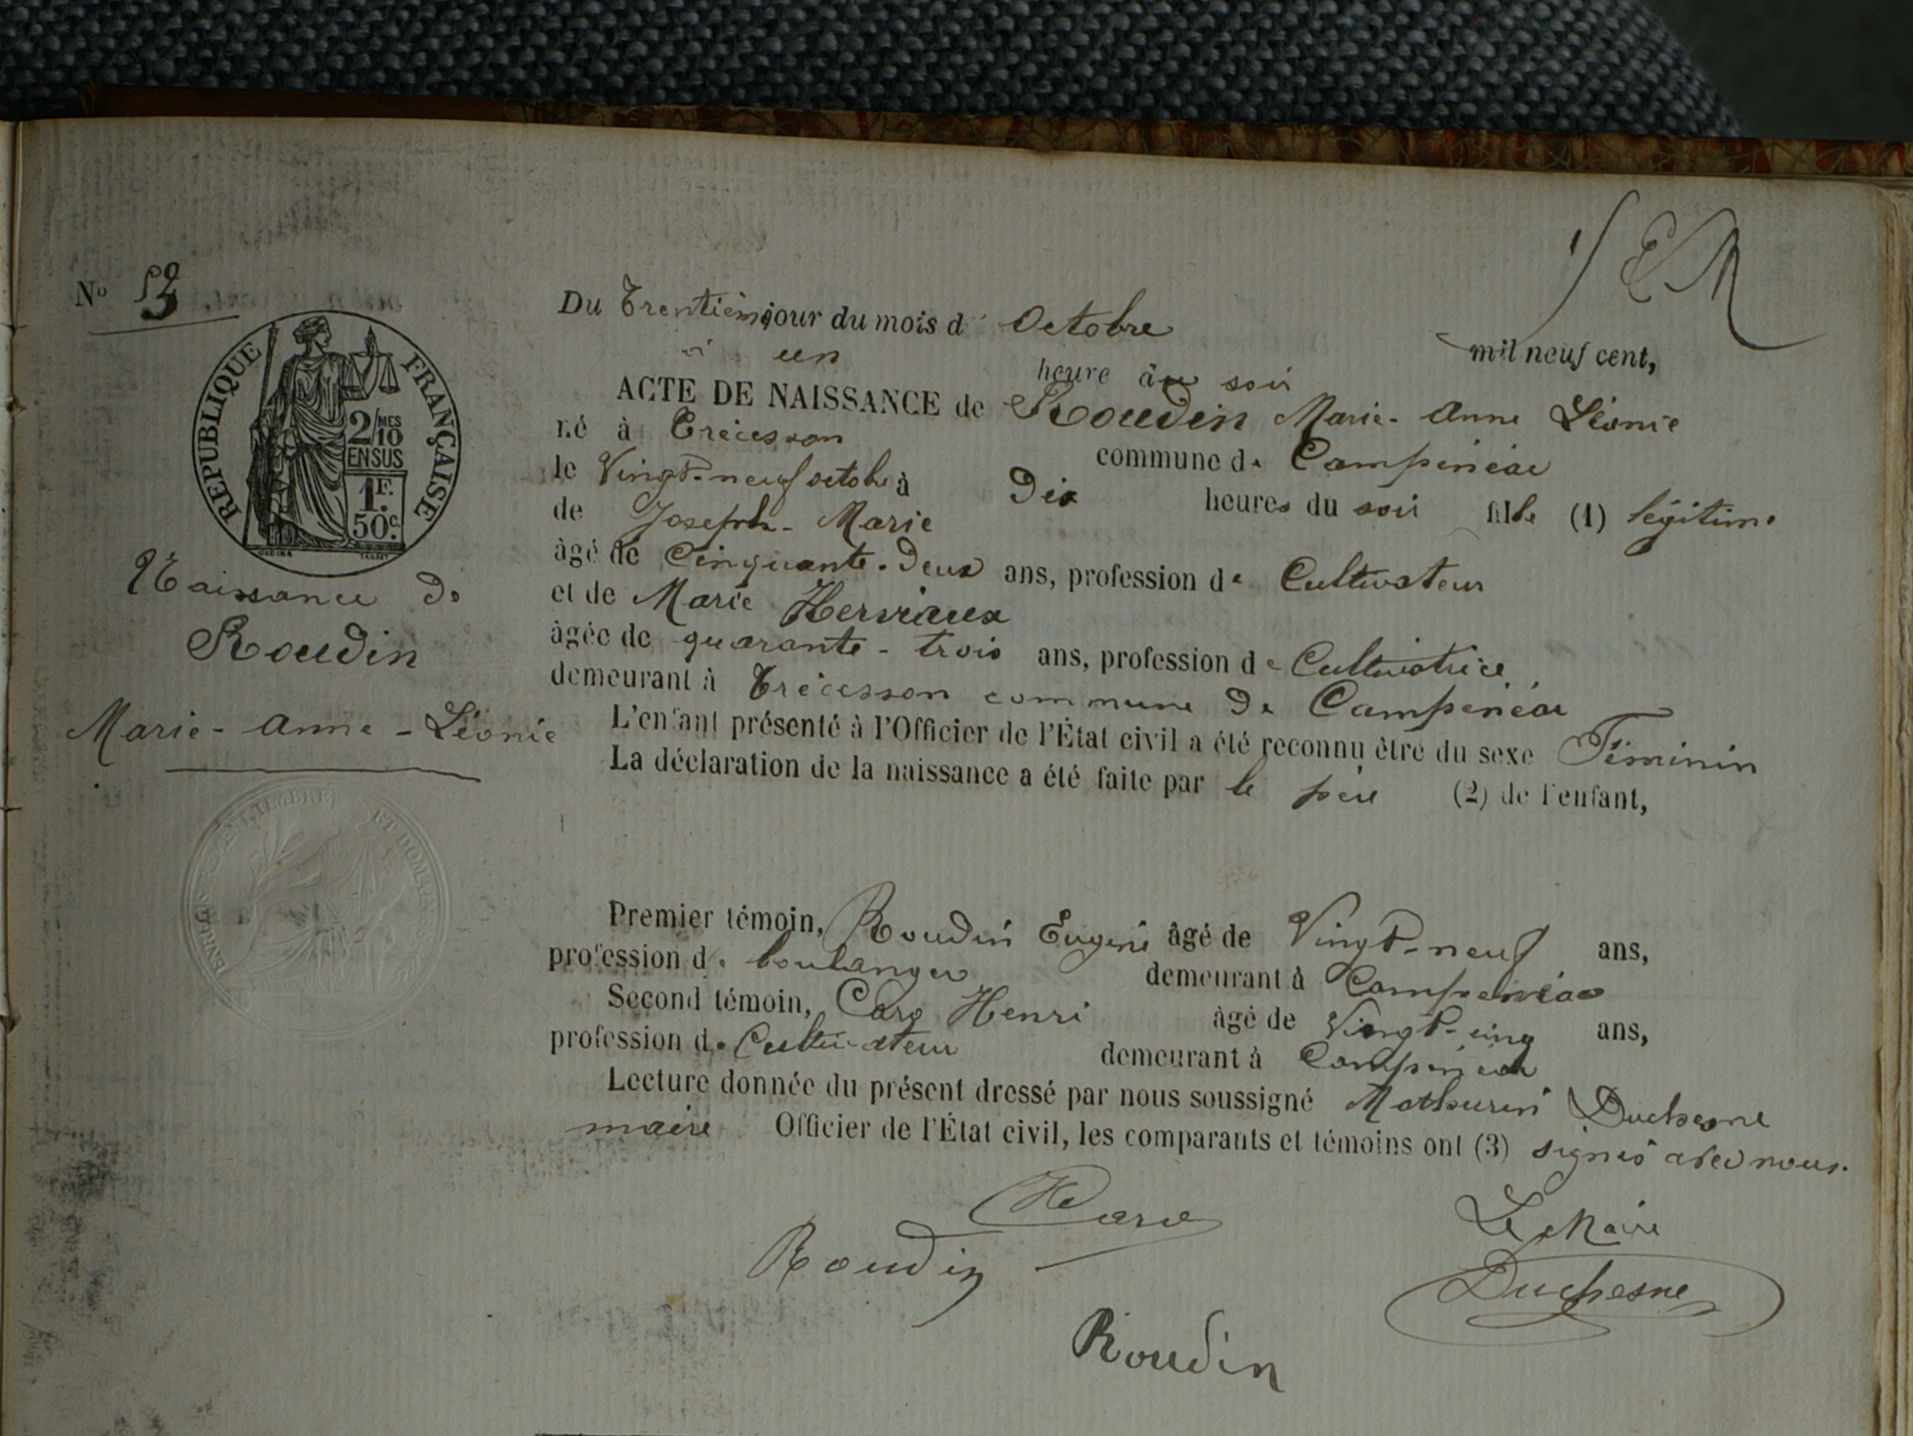 Nº 53
RÉPUBLIQUE FRANÇAISE
2/MES
10
EN SUS
1F.
50c.
Naissance de
Roudin
Marie-Anne-Léonie
Du Trentième jour du mois d' Octobre mil neuf cent,
à un heure du soir
ACTE DE NAISSANCE de Roudin Marie-Anne Léonie
né à Trécesson commune de Campénéac
le Vingt-neuf octobre à Dix heures du soir fille (1) légitime
de Joseph-Marie
âgé de Cinquante-deux ans, profession de Cultivateur
et de Marie Herviaux
âgée de quarante-trois ans, profession de Cultivatrice
demeurant à Trécesson commune de Campénéac
L'enfant présenté à l'Officier de l'État civil a été reconnu être du sexe Féminin
La déclaration de la naissance a été faite par le père (2) de l'enfant,
Premier témoin, Roudin Eugène âgé de Vingt-neuf ans,
profession de boulanger demeurant à Campénéac
Second témoin, Caro Henri âgé de Vingt-cinq ans,
profession de Cultivateur demeurant à Campénéac
Lecture donnée du présent dressé par nous soussigné Mathurin Duchesne
maire Officier de l'État civil, les comparants et témoins ont (3) signés avec nous.
H Caro
Le Maire
Roudin
Duchesne
Roudin